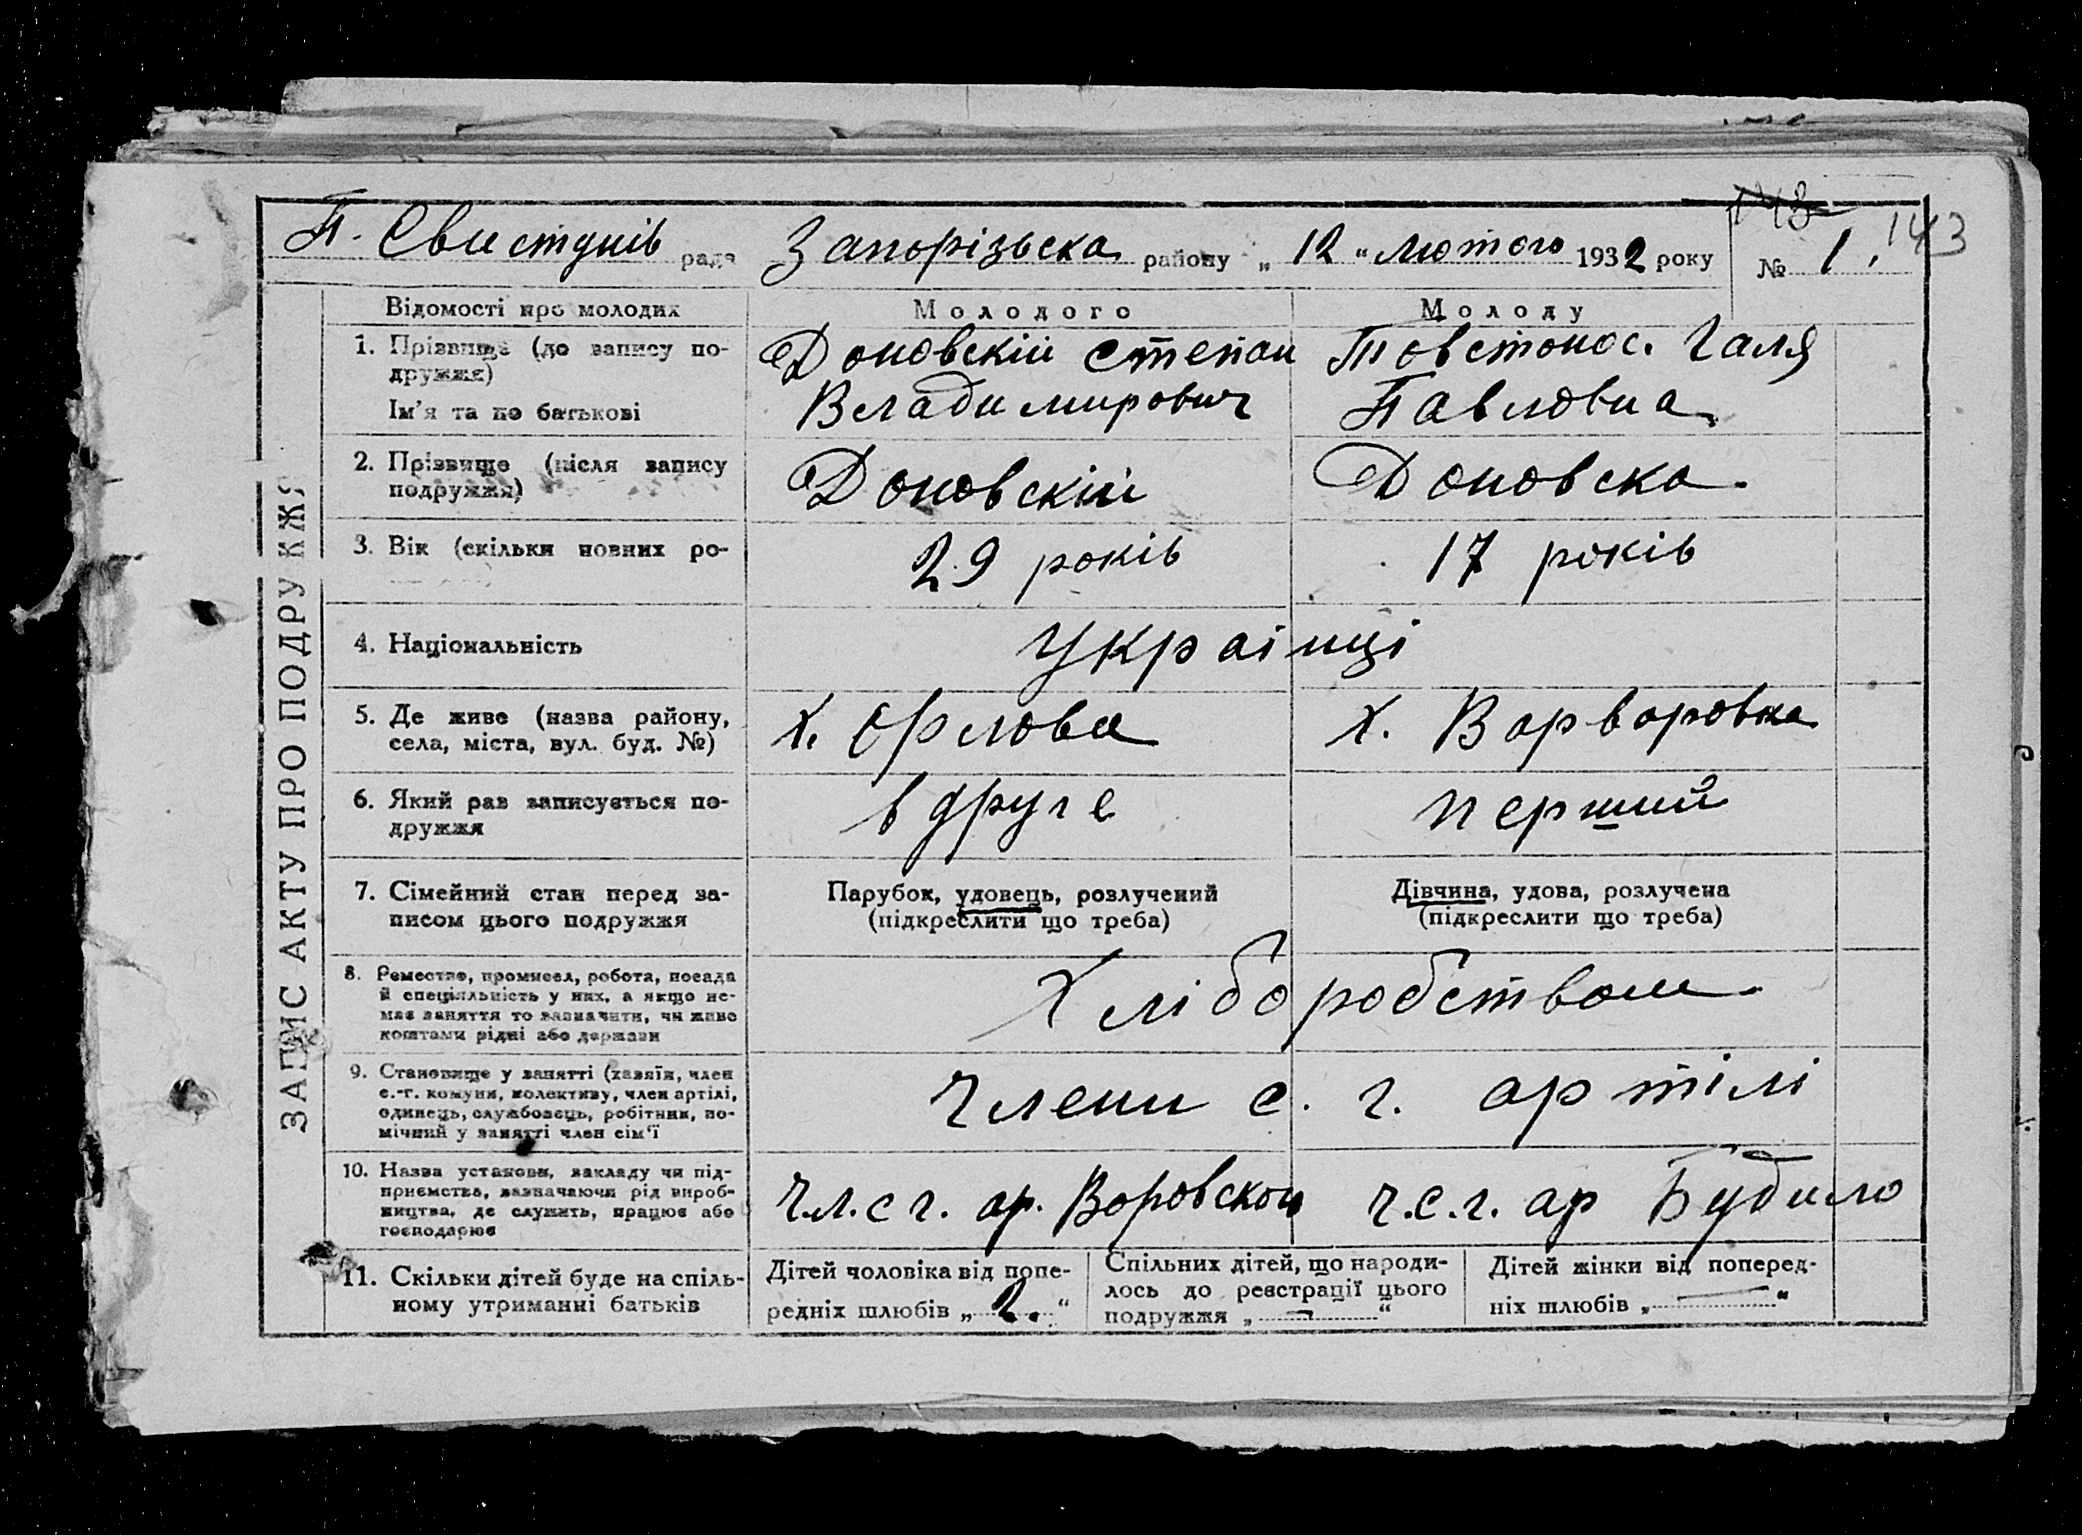 143
П. Свистунів рада Запорізьска району „ 12 “ Лютого 1932 року № 1. 143
ЗАПИС АКТУ ПРО ПОДРУЖЖЯ
Відомості про молодих Молодого Молоду
1. Прізвище (до запису по-
дружжя)
Ім'я та по батькові
Доновскій Степан
Владимирович
Товстонос. Галя
Павловна
2. Прізвище (після запису
подружжя)
Доновскій
Доновска.
3. Вік (скільки повних ро-
29 років
17 років
4. Національність
Украінці
5. Де живе (назва району,
села, міста, вул. буд. №)
х. Орлова
х. Варваровка
6. Який раз записується по-
дружжя
вдруге
перший
7. Сімейний стан перед за-
писом цього подружжя
Парубок, удовець, розлучений
(підкреслити що треба)
Дівчина, удова, розлучена
(підкреслити що треба)
8. Ремество, промисел, робота, посада
й спеціяльність у них, а якщо не-
має заняття то зазначити, чи живе
коштами рідні або держави
Хліборобством.
9. Становище у занятті (хазяїн, член
с.-г. комуни, колективу, член артілі,
одинець, службовець, робітник, по-
мічний у занятті член сім'ї
Члени с. г. артілі
10. Назва установи, закладу чи під-
приємства, зазначаючи рід вироб-
ництва, де служить, працює або
господарює
Чл. с г. ар. Воровской
ч.с.г. ар Будило
11. Скільки дітей буде на спіль-
ному утриманні батьків
Дітей чоловіка від попе-
редніх шлюбів „ 2. “
Спільних дітей, що народи-
лось до реєстрації цього
подружжя „ – “
Дітей жінки від поперед-
ніх шлюбів „ — “